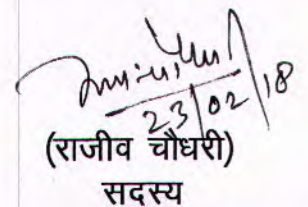 23/02/18
(राजीव चौधरी)
सदस्य